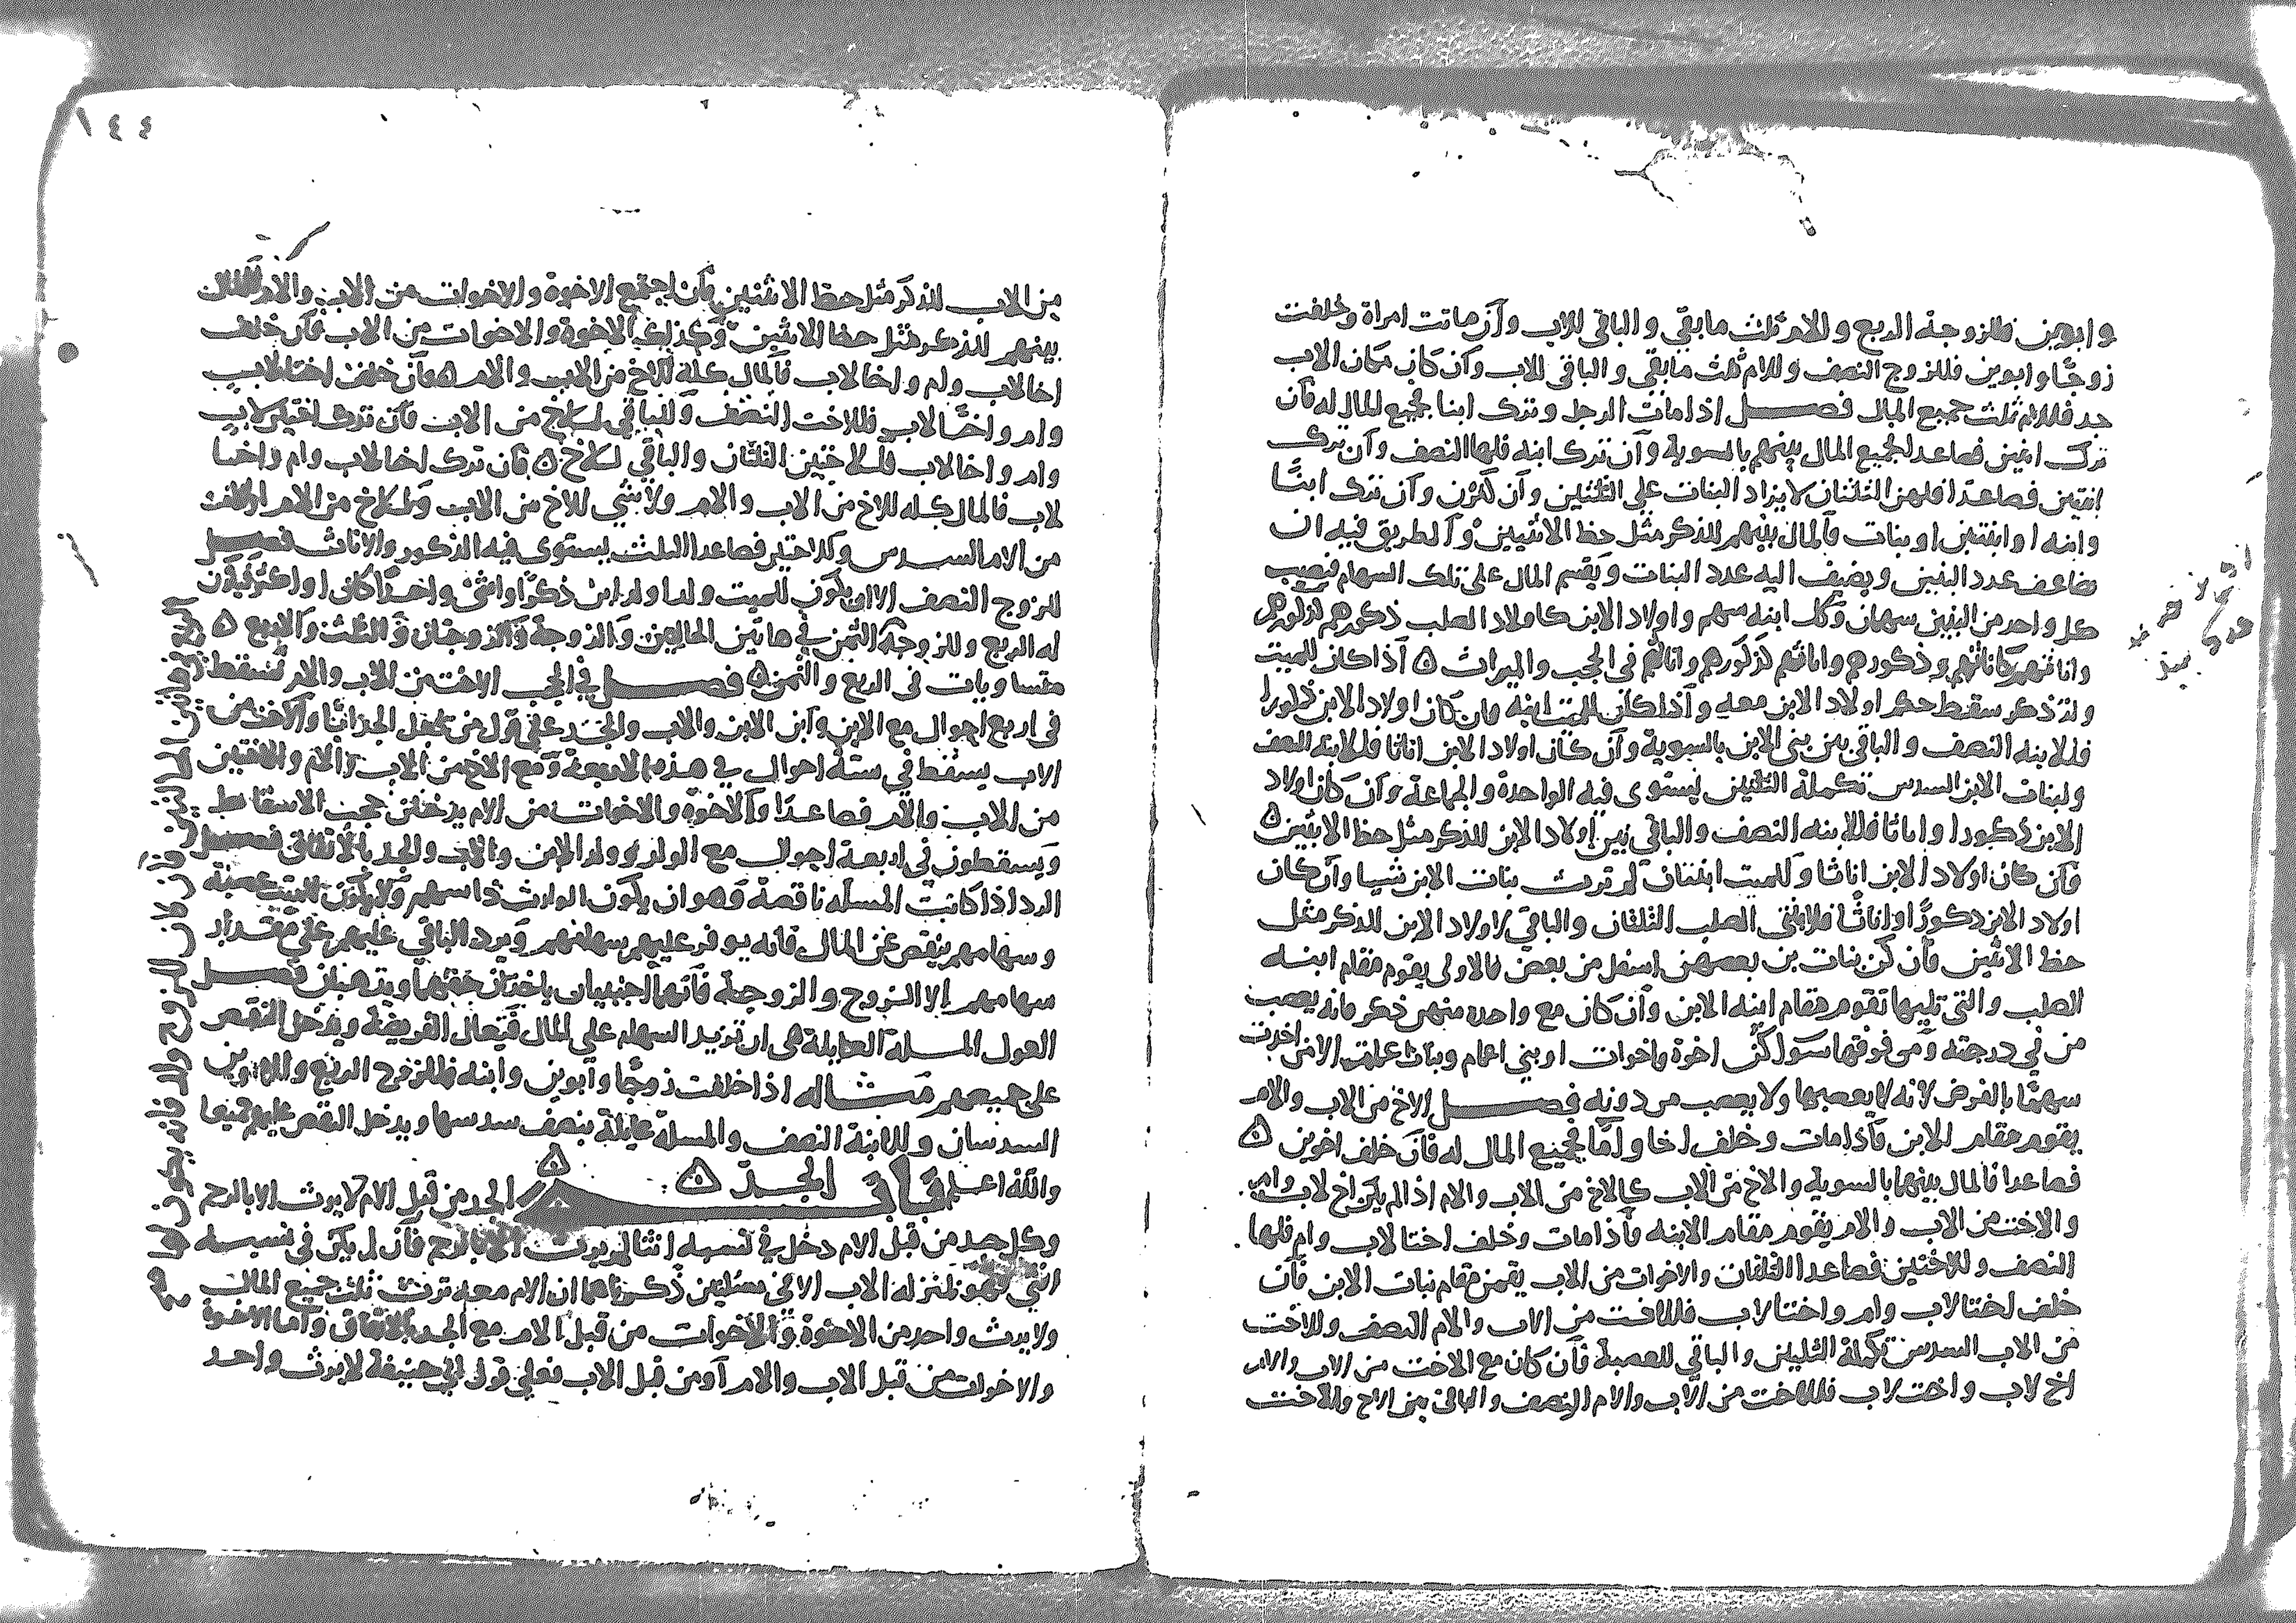 وابوين فللزوجة الربع وللام ثلث ما بقي والباقي للاب وان ماتت امراة وخلفت
زوجا وابوين فللزوج النصف وللام ثلث ما بقي والباقي للاب وان كان مكان الاب
جد فللام ثلث جميع المال فصل اذا مات الرجل وترك ابنا فجميع المال له فان
ترك ابنين فصاعدا فجميع المال بينهم بالسوية وان ترك ابنه فلها النصف وان ترك
ابنتين فصاعدا فلهن الثلثان لا يزاد البنات على الثلثين وان كثرن وان ترك ابنا
وابنه او ابنتين او بنات فالمال بينهم للذكر مثل حظ الانثيين والطريق فيه ان
يضاعف عدد البنين ويضيف اليه عدد البنات ويقسم المال على تلك السهام فنصيب
كل واحد من البنين سهمان وكل ابنه سهم واولاد الابن كاولاد الصلب ذكورهم كذكورهم
واناثهم كاناثهم وذكورهم واناثهم كذكورهم واناثهم في الحجب والميراث اذا كان للميت
ولد ذكر سقط حكم اولاد الابن معه واذا كان للميت ابنه فان كان اولاد الابن ذكورا
فللابنه النصف والباقي بين بني الابن بالسوية وان كان اولاد الابن اناثا فللابنه النصف
ولبنات الابن السدس تكملة الثلثين يستوى فيه الواحدة والجماعة وان كان اولاد
الابن ذكورا واناثا فللابنه النصف والباقي بين اولاد الابن للذكر مثل حظ الانثيين
فان كان اولاد الابن اناثا وللميت ابنتان لم ترث بنات الابن شيا وان كان
اولاد الابن ذكورا واناثا فلابنتي الصلب الثلثان والباقي لاولاد الابن للذكر مثل
حظ الانثيين فان كن بنات بن بعضهن اسفل من بعض فالاولى يقوم مقام ابنه
الصلب والتي تليها تقوم مقام ابنه الابن وان كان مع واحده منهن ذكر فانه يعصب
من في درجته ومن فوقها سوا كن اخوة واخوات او بني اعمام وبنات اعمام الا من احرزت
سهمها بالفرض لانه لا يعصبها ولا يعصب من دونه فصل الاخ من الاب والام
يقوم مقام الابن فاذا مات وخلف اخا واما فجميع المال له فان خلف اخوين
فصاعدا فالمال بينهما بالسوية والاخ من الاب كالاخ من الاب والام اذا لم يكن اخ لاب وام
والاخت من الاب والام يقوم مقام الابنه فاذا مات وخلف اختا لاب وام فلها
النصف وللاختين فصاعدا الثلثان والاخوات من الاب يقمن مقام بنات الابن فان
خلف اختا لاب وام واختا لاب فللاخت من الاب والام النصف وللاخت
من الاب السدس تكملة الثلثين والباقي للعصبة فان كان مع الاخت من الاب والام
اخ لاب واخت لاب فللاخت من الاب والام النصف والباقي بين الاخ والاخت
١٤٤
من الاب للذكر مثل حظ الانثيين فان اجتمع الاخوة والاخوات من الاب والام فالمال
بينهم للذكر مثل حظ الانثيين وكذلك الاخوة والاخوات من الاب فان خلف
اخا لاب وام واخا لاب فالمال كله للاخ من الاب والام فان خلف اختا لاب
وام واخا لاب فللاخت النصف والباقي للاخ من الاب فان ترك اختين لاب
وام واخا لاب فللاختين الثلثان والباقي للاخ فان ترك اخا لاب وام واخا
لاب فالمال كله للاخ من الاب والام ولا شي للاخ من الاب وللاخ من الام او الاخت
من الام السدس وللاختين فصاعدا الثلث يستوى فيه الذكور والاناث فصل
للزوج النصف الا ان يكون للميت ولد او ولد ابن ذكرا او انثى واحدا كان او اكثر فيكون
له الربع وللزوجة الثمن في هاتين الحالين والزوجة والزوجتان والثلث والاربع
متساويات في الربع والثمن فصل في الحجب الاخت من الاب والام تسقط
في اربع احوال مع الابن وابن الابن والاب والجد على قول من يجعل الجد ابا والاخت من
الاب يسقط في ستة احوال في هذه الاربعة ومع الاخ من الاب والام والاختين
من الاب والام فصاعدا والاخوة والاخوات من الام يدخلن حجب الاسقاط
ويسقطون في اربعة احوال مع الولد وولد الابن والاب والجد بالاتفاق فصل
الرد اذا كانت المسله ناقصة وهو ان يكون الوارث ذا سهم ولا يكون للميت عصبة
وسهامهم ينقص عن المال فانه يوفر عليهم سهامهم ويرد الباقي عليهم على مقدار
سهامهم الا الزوج والزوجة فانهما اجنبيان ياخذان حقهما ويذهبان فصل
العول المسله العايلة هى ان تزيد السهام على المال فتعال الفريضة ويدخل النقص
على جميعهم مثاله اذا خلفت زوجا وابوين وابنه فللزوج الربع وللابوين
السدسان وللابنة النصف والمسلة عايلة بنصف سدسها ويدخل النقص عليهم جميعا
والله اعلم باب الجد الجد من قبل الام لا يورث الا بالرحم
وكل جد من قبل الام دخل في نسبه انثا لم يورث الا بالرحم فان لم يكن في نسبه
انثى فهو بمنزلة الاب الا في مسلتين ذكرناهما ان الام معه ترث ثلث جميع المال
ولا يورث واحد من الاخوة والاخوات من قبل الام مع الجد بالاتفاق واما الاخوة
والاخوات من قبل الاب والام او من قبل الاب فعلى قول ابي حنيفة لا يورث واحد